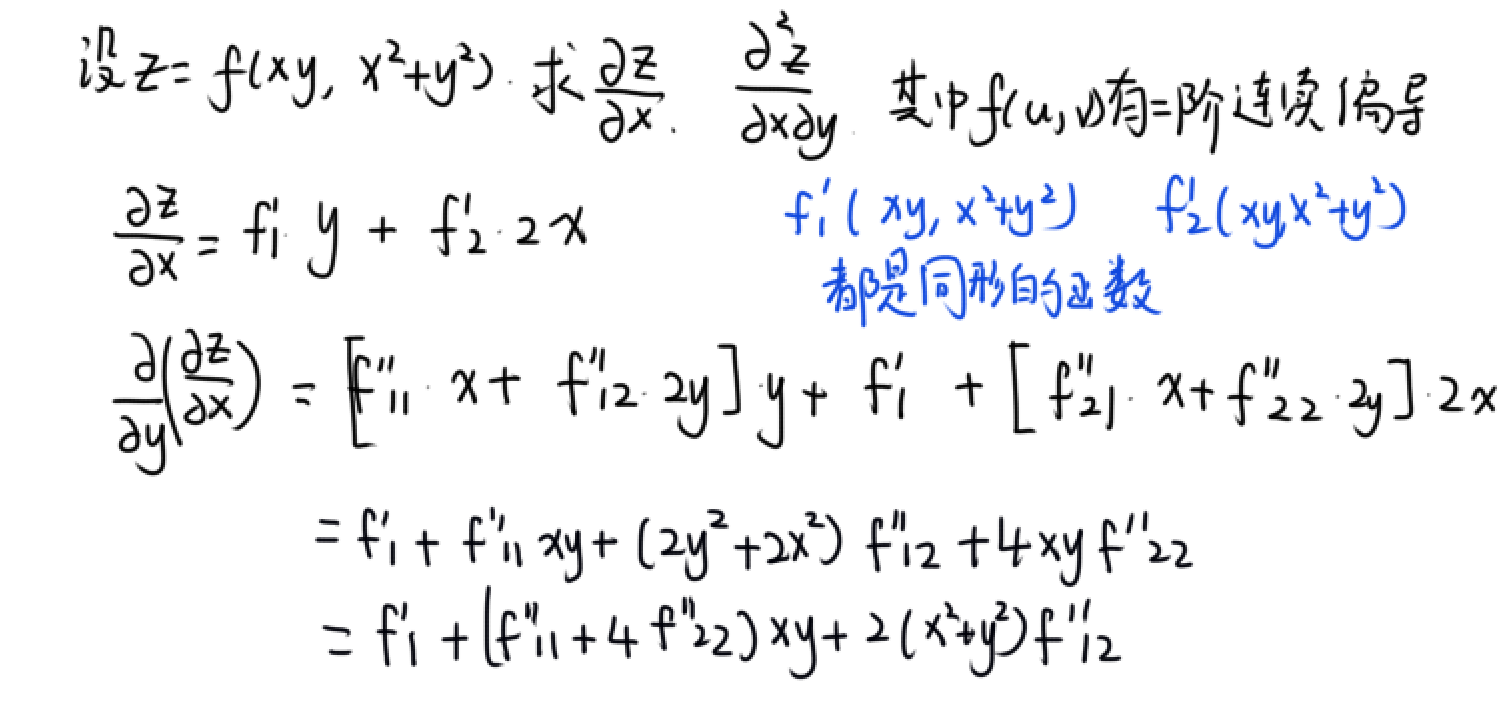 设 z = f(xy, x²+y²). 求 ∂z/∂x. ∂²z/∂x∂y. 其中 f(u,v)有二阶连续偏导
∂z/∂x = f₁′·y + f₂′·2x
f₁′(xy, x²+y²) f₂′(xy, x²+y²)
都是同形的函数
∂/∂y(∂z/∂x) = [f″₁₁·x + f″₁₂·2y]·y + f₁′ + [f″₂₁·x + f″₂₂·2y]·2x
= f₁′ + f″₁₁xy + (2y²+2x²) f″₁₂ + 4xyf″₂₂
= f₁′ + (f″₁₁ + 4f″₂₂)xy + 2(x²+y²)f″₁₂